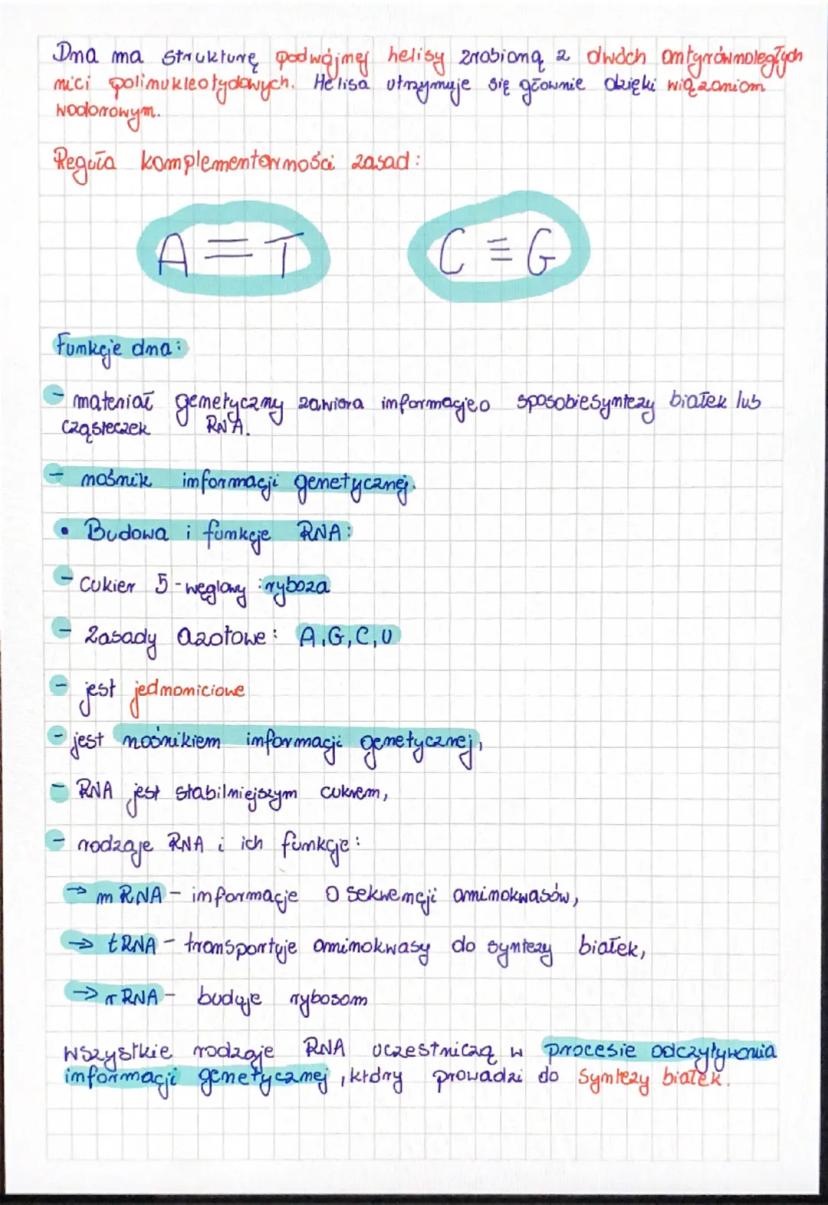 Dna ma strukturę podwójnej helisy zrobioną z dwóch antyrównoległych
nici polinukleotydowych. Helisa utrzymuje się głównie dzięki wiązaniom
wodorowym.
Reguła komplementarności zasad:
A = T C ≡ G
Funkcje dna:
- materiał genetyczny zawiera informacjeo sposobiesyntezy białek lub
cząsteczek RNA.
- nośnik informacji genetycznej.
• Budowa i funkcje RNA:
- Cukier 5-węglowy : ryboza
- Zasady azotowe: A,G,C,U
- jest jednoniciowe
- jest nośnikiem informacji genetycznej,
- RNA jest stabilniejszym cukrem,
- rodzaje RNA i ich funkcje:
→ mRNA - informacje o sekwencji aminokwasów,
→ tRNA - transportuje aminokwasy do syntezy białek,
→ rRNA - buduje rybosom
wszystkie rodzaje RNA uczestniczą w procesie odczytywania
informacji genetycznej, który prowadzi do syntezy białek.